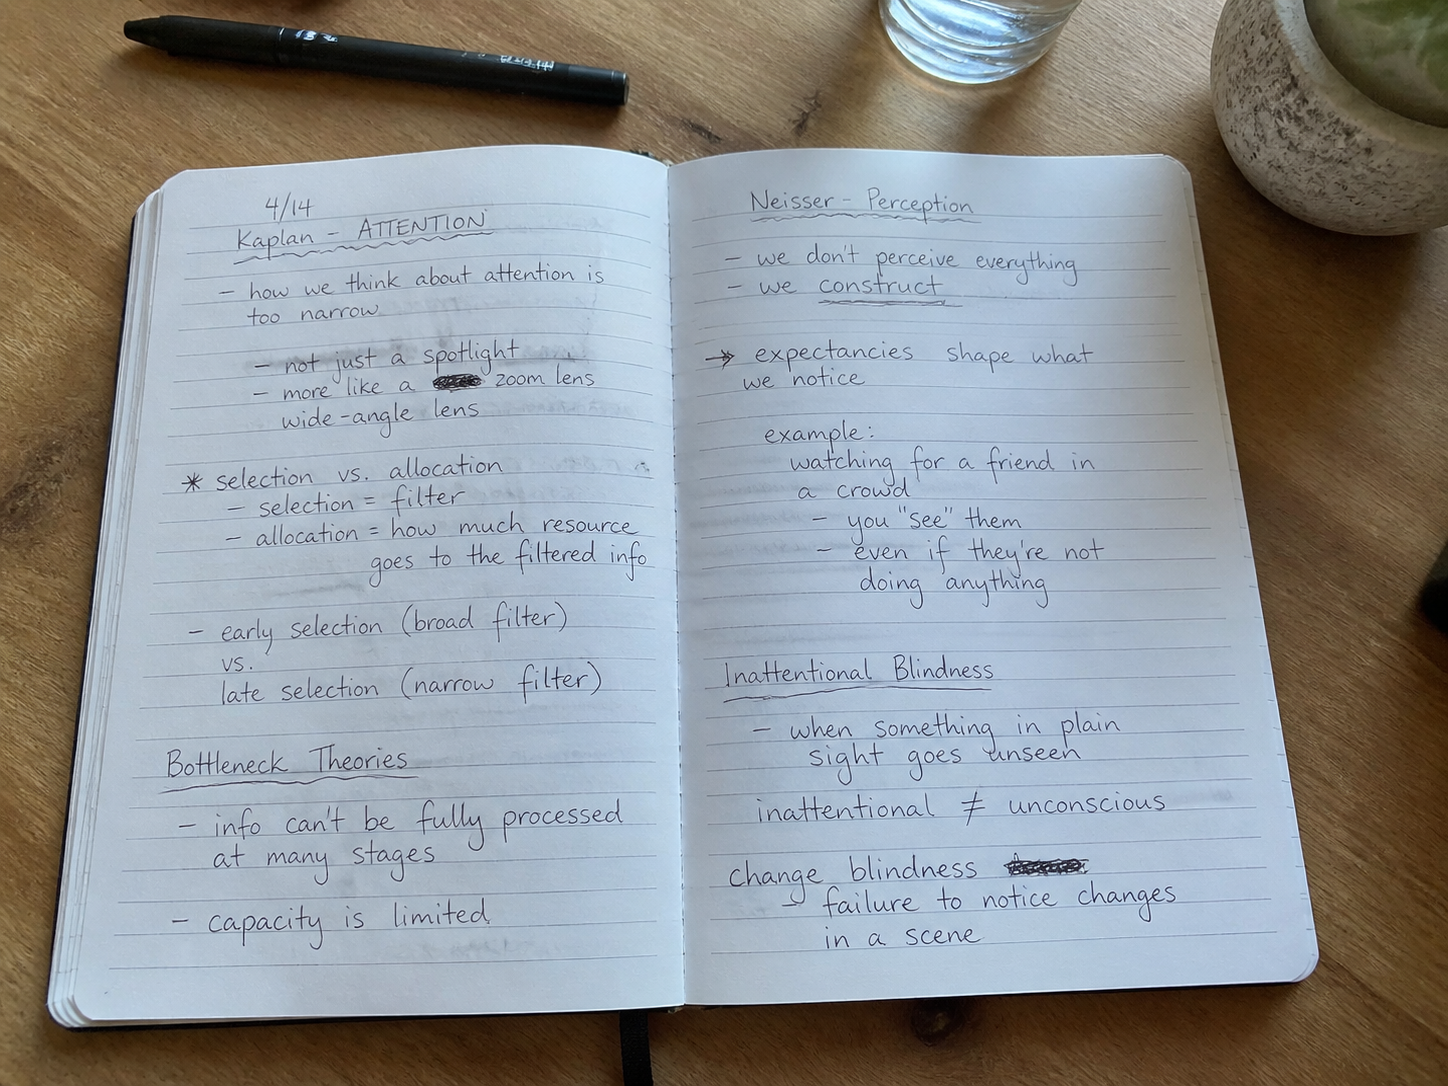 4/14
Kaplan - ATTENTION
- how we think about attention is
too narrow
- not just a spotlight
- more like a zoom lens
wide-angle lens
* selection vs. allocation
- selection = filter
- allocation = how much resource
goes to the filtered info
- early selection (broad filter)
vs.
late selection (narrow filter)
Bottleneck Theories
- info can't be fully processed
at many stages
- capacity is limited
Neisser - Perception
- we don't perceive everything
- we construct
→ expectancies shape what
we notice
example:
watching for a friend in
a crowd
- you "see" them
- even if they're not
doing anything
Inattentional Blindness
- when something in plain
sight goes unseen
inattentional ≠ unconscious
change blindness
- failure to notice changes
in a scene